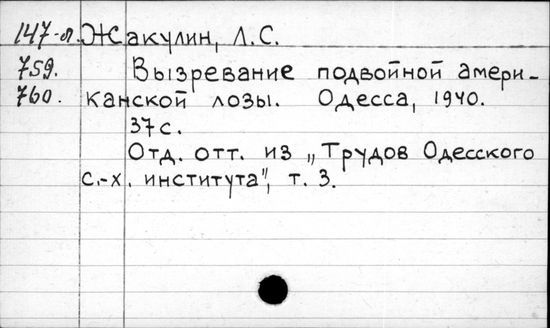 147-л. Жакулин, Л.С.
759. Вызревание подвойной амери-
760. канской лозы. Одесса, 1940.
37с.
Отд. отт. из „Трудов Одесского
с.-х. института", т. 3.